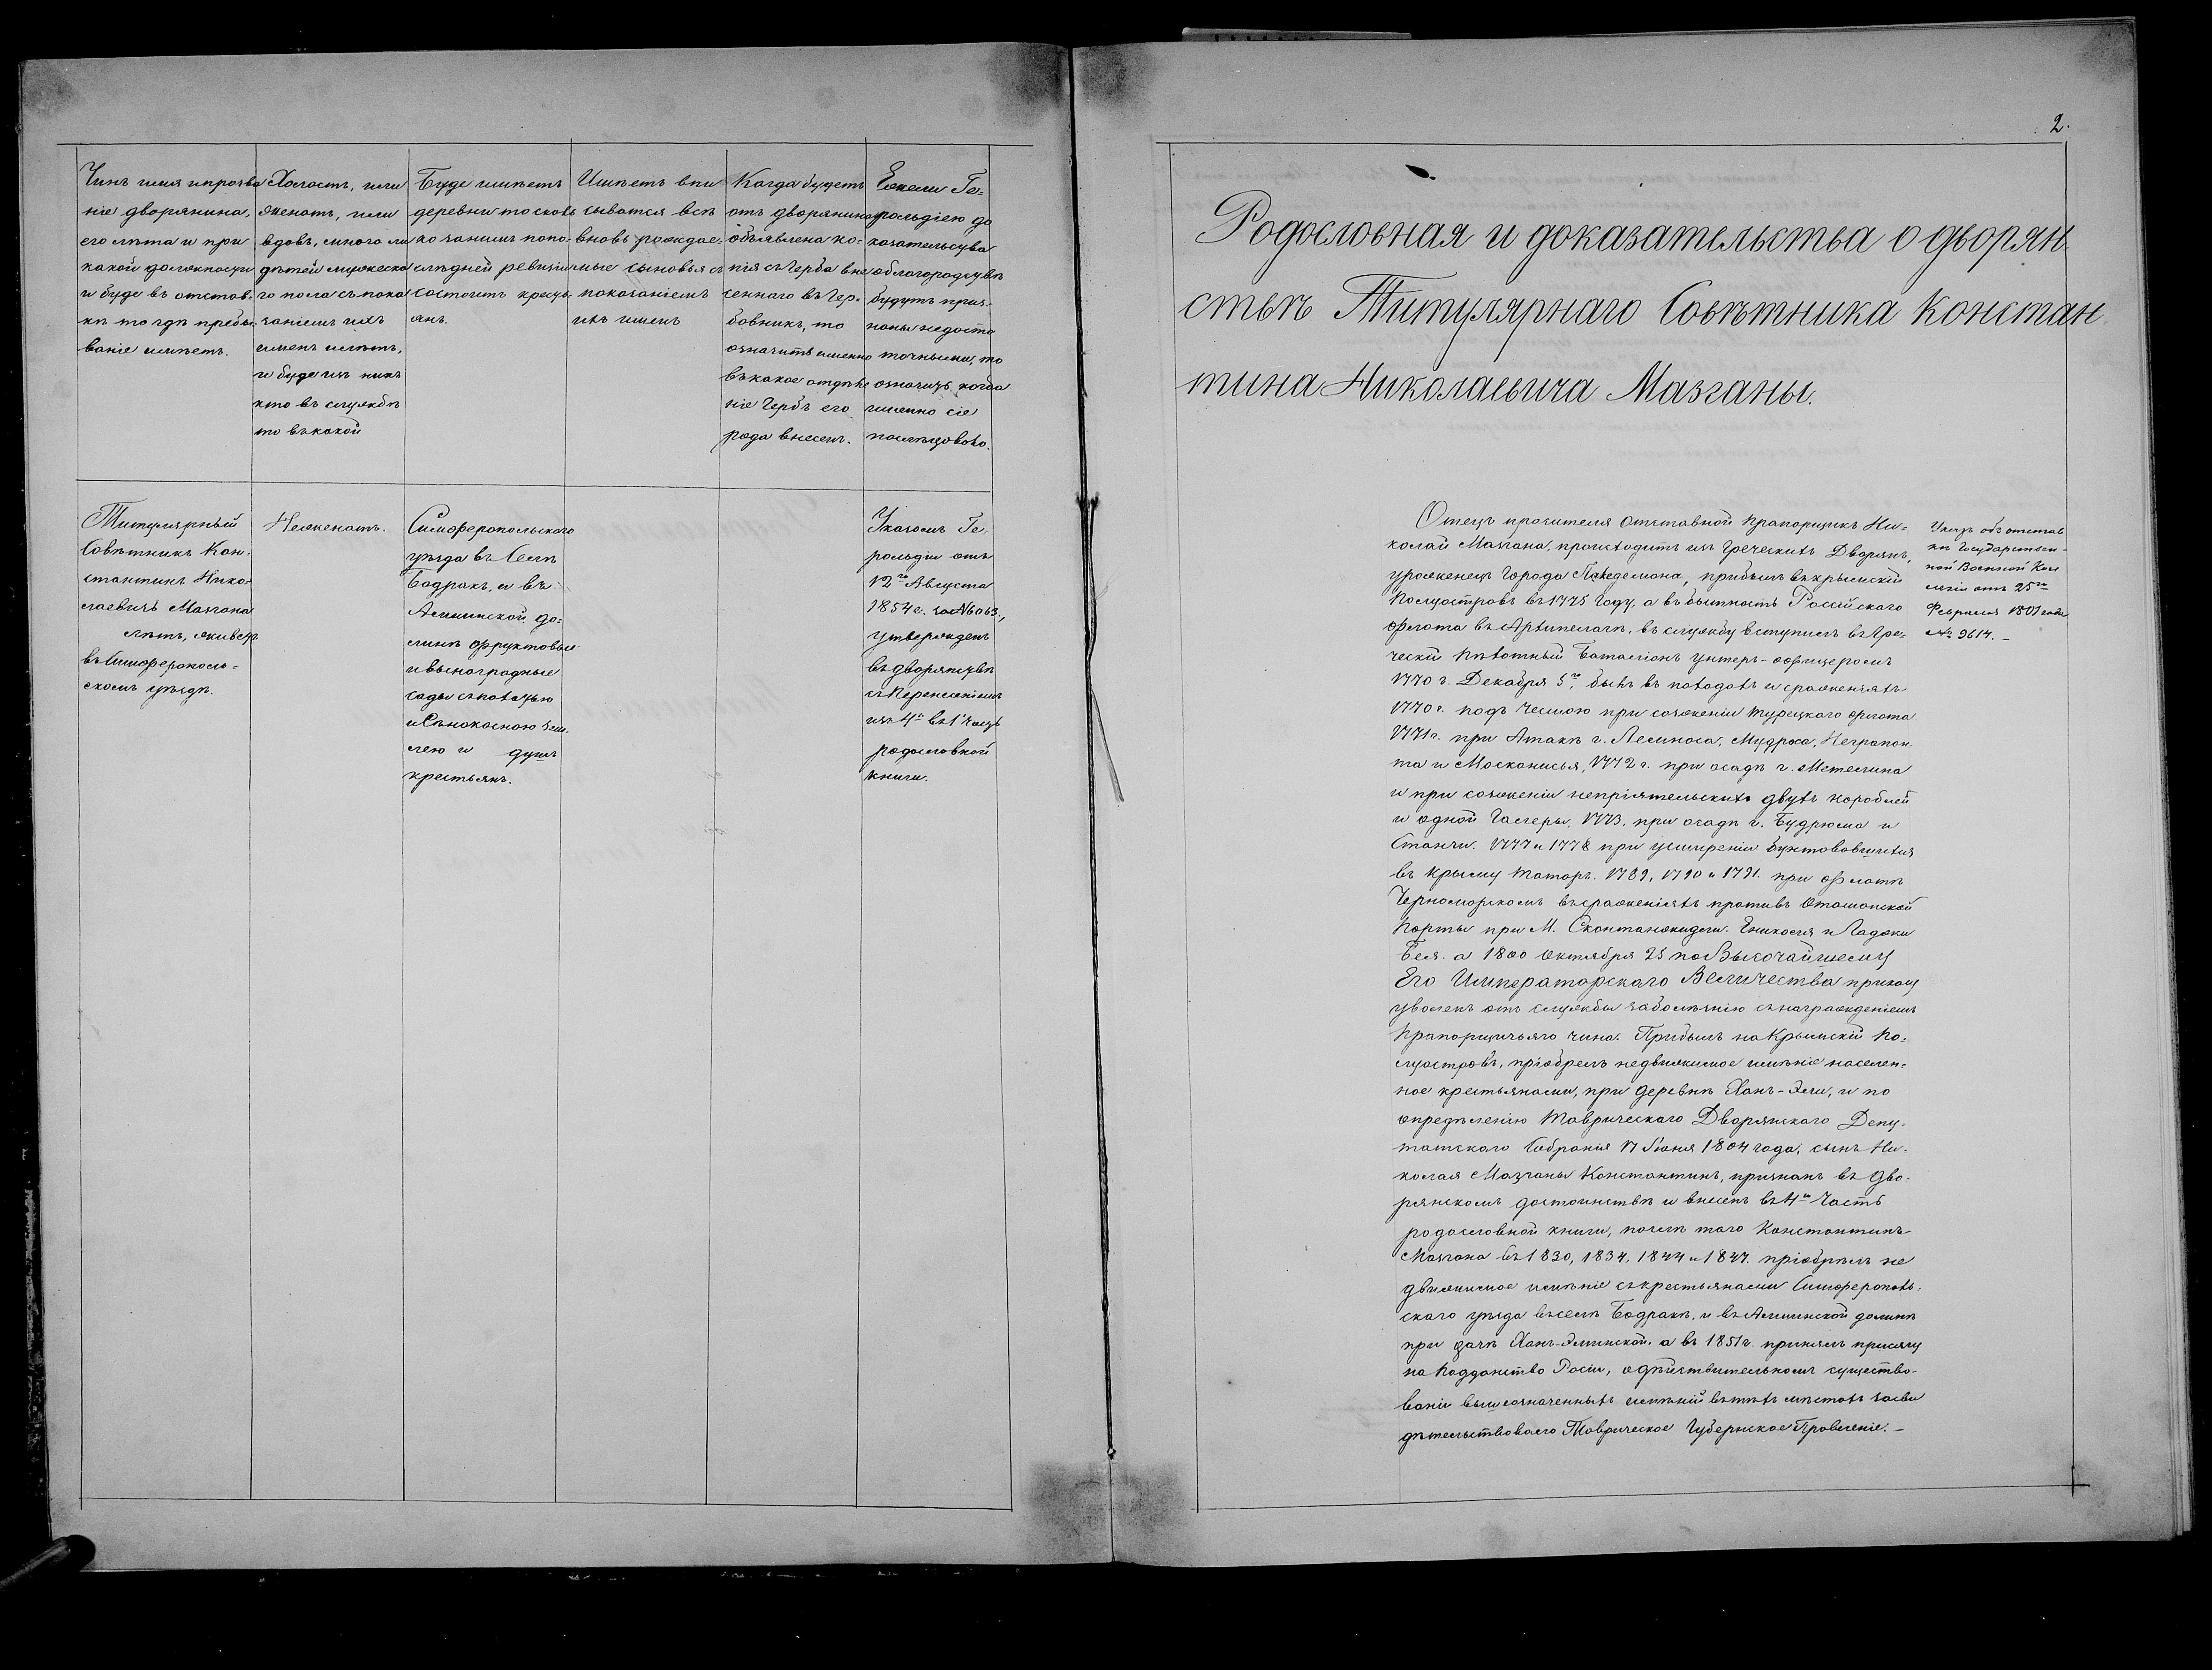 Чинъ имя и прозва
ніе дворянина,
его лѣта и при
какой должности
и буде въ отстав-
кѣ то гдѣ пребы-
ваніе имѣетъ.
Холостъ, или
женатъ, или
вдовъ, много ли
дѣтей мужеска
го пола съ пока
заніемъ ихъ
именъ и лѣтъ,
и буде изъ нихъ
кто въ службѣ
то въ какой
Буде имѣетъ
деревни то сколь
ко за нимъ по по-
слѣдней ревизіи
состоитъ кресть-
янъ.
Имѣетъ впи
сыватся всѣ
вновь рождае-
мые сыновья съ
показаніемъ
ихъ именъ
Когда будетъ
отъ дворянина
объявлена ко-
пія съ Герба вне
сеннаго въ Гер-
бовникъ, то
означить именно
въ какое отдѣле
ніе Гербъ его
рода внесенъ.
Ежели Ге-
рольдіею до
казательства
о благородствѣ
будутъ приз-
наны недоста
точными, то
означить когда
именно сіе
послѣдовало.
Титулярный
Совѣтникъ Кон-
стантинъ Нико-
лаевичъ Мазгана
лѣтъ, живетъ
въ Симферополь-
скомъ уѣздѣ.
Неженатъ.
Симферопольскаго
уѣзда въ Селѣ
Бодракъ, и въ
Алминской до-
линѣ фруктовые
и виноградные
сады съ пахатью
и Сѣнокосною зем-
лею и душъ
крестьянъ.
Указомъ Ге-
рольдіи отъ
12го Августа
1854 г. за № 6063,
утвержденъ
въ дворянствѣ
съ перенесеніемъ
изъ 4й въ 1ю часть
родословной
книги.
2.
Родословная и доказательства о дворян-
ствѣ Титулярнаго Совѣтника Констан-
тина Николаевича Мазганы.
Отецъ просителя отставной Прапорщикъ Ни-
колай Мазгана, происходитъ изъ Греческихъ Дворянъ,
уроженецъ Города , прибылъ въ крымскій
Полуостровъ въ 1775 году, а въ бытность Россійскаго
флота въ Архипелагѣ, въ службу вступилъ въ Гре-
ческій Пѣхотный Баталіонъ унтеръ-офицеромъ
1770 г. Декабря 5го, былъ въ походахъ и сраженіяхъ
1770 г. подъ Чесмою при сожженіи турецкаго флота
1771 г. при Атакѣ г. Лемноса, Мудроса, Неграпон-
та и , 1772 г. при осадѣ г. Метелина
и при сожженіи непріятельскихъ двухъ кораблей
и одной Галеры, 1773. при осадѣ г. Будрюма и
Станчи. 1777 и 1778 при усмиреніи бунтовавшихся
въ Крыму татаръ. 1789, 1790 и 1791. при флотѣ
Черноморскомъ въ сраженіяхъ противъ Отаманской
Порты при М. . Еникаля и
Бея. а 1800 Октября 25 по Высочайшему
Его Императорскаго Величества приказу
уволенъ отъ службы за болѣзнію съ награжденіемъ
Прапорщичьяго чина. Прибылъ на Крымскій По-
луостровъ, пріобрелъ недвижимое имѣніе населен-
ное крестьянами, при деревнѣ Ханъ-Эли, и по
опредѣленію Таврическаго Дворянскаго Депу-
татскаго Собранія 17 Іюня 1804 года, сынъ Ни-
колая Мазганы Константинъ, признанъ въ дво-
рянскомъ достоинствѣ и внесенъ въ 4ю Часть
родословной книги, послѣ того Константинъ
Мазгана въ 1830, 1834, 1844 и 1847. пріобрѣлъ не
движимое имѣніе съ крестьянами Симферополь-
скаго уѣзда въ селѣ Бодракѣ, и въ Алминской долинѣ
при дачѣ Ханъ-Элинской. а въ 1851 г. принялъ присягу
на Подданство Росіи, о дѣйствительномъ существо-
ваніи вышеозначенныхъ имѣній въ тѣхъ мѣстахъ засви
дѣтельствовало Таврическое Губернское Правленіе.-
Указъ объ отстав
кѣ Государствен-
ной Военной Кол
легіи отъ 25го
Февраля 1801 года
№ 9614. -